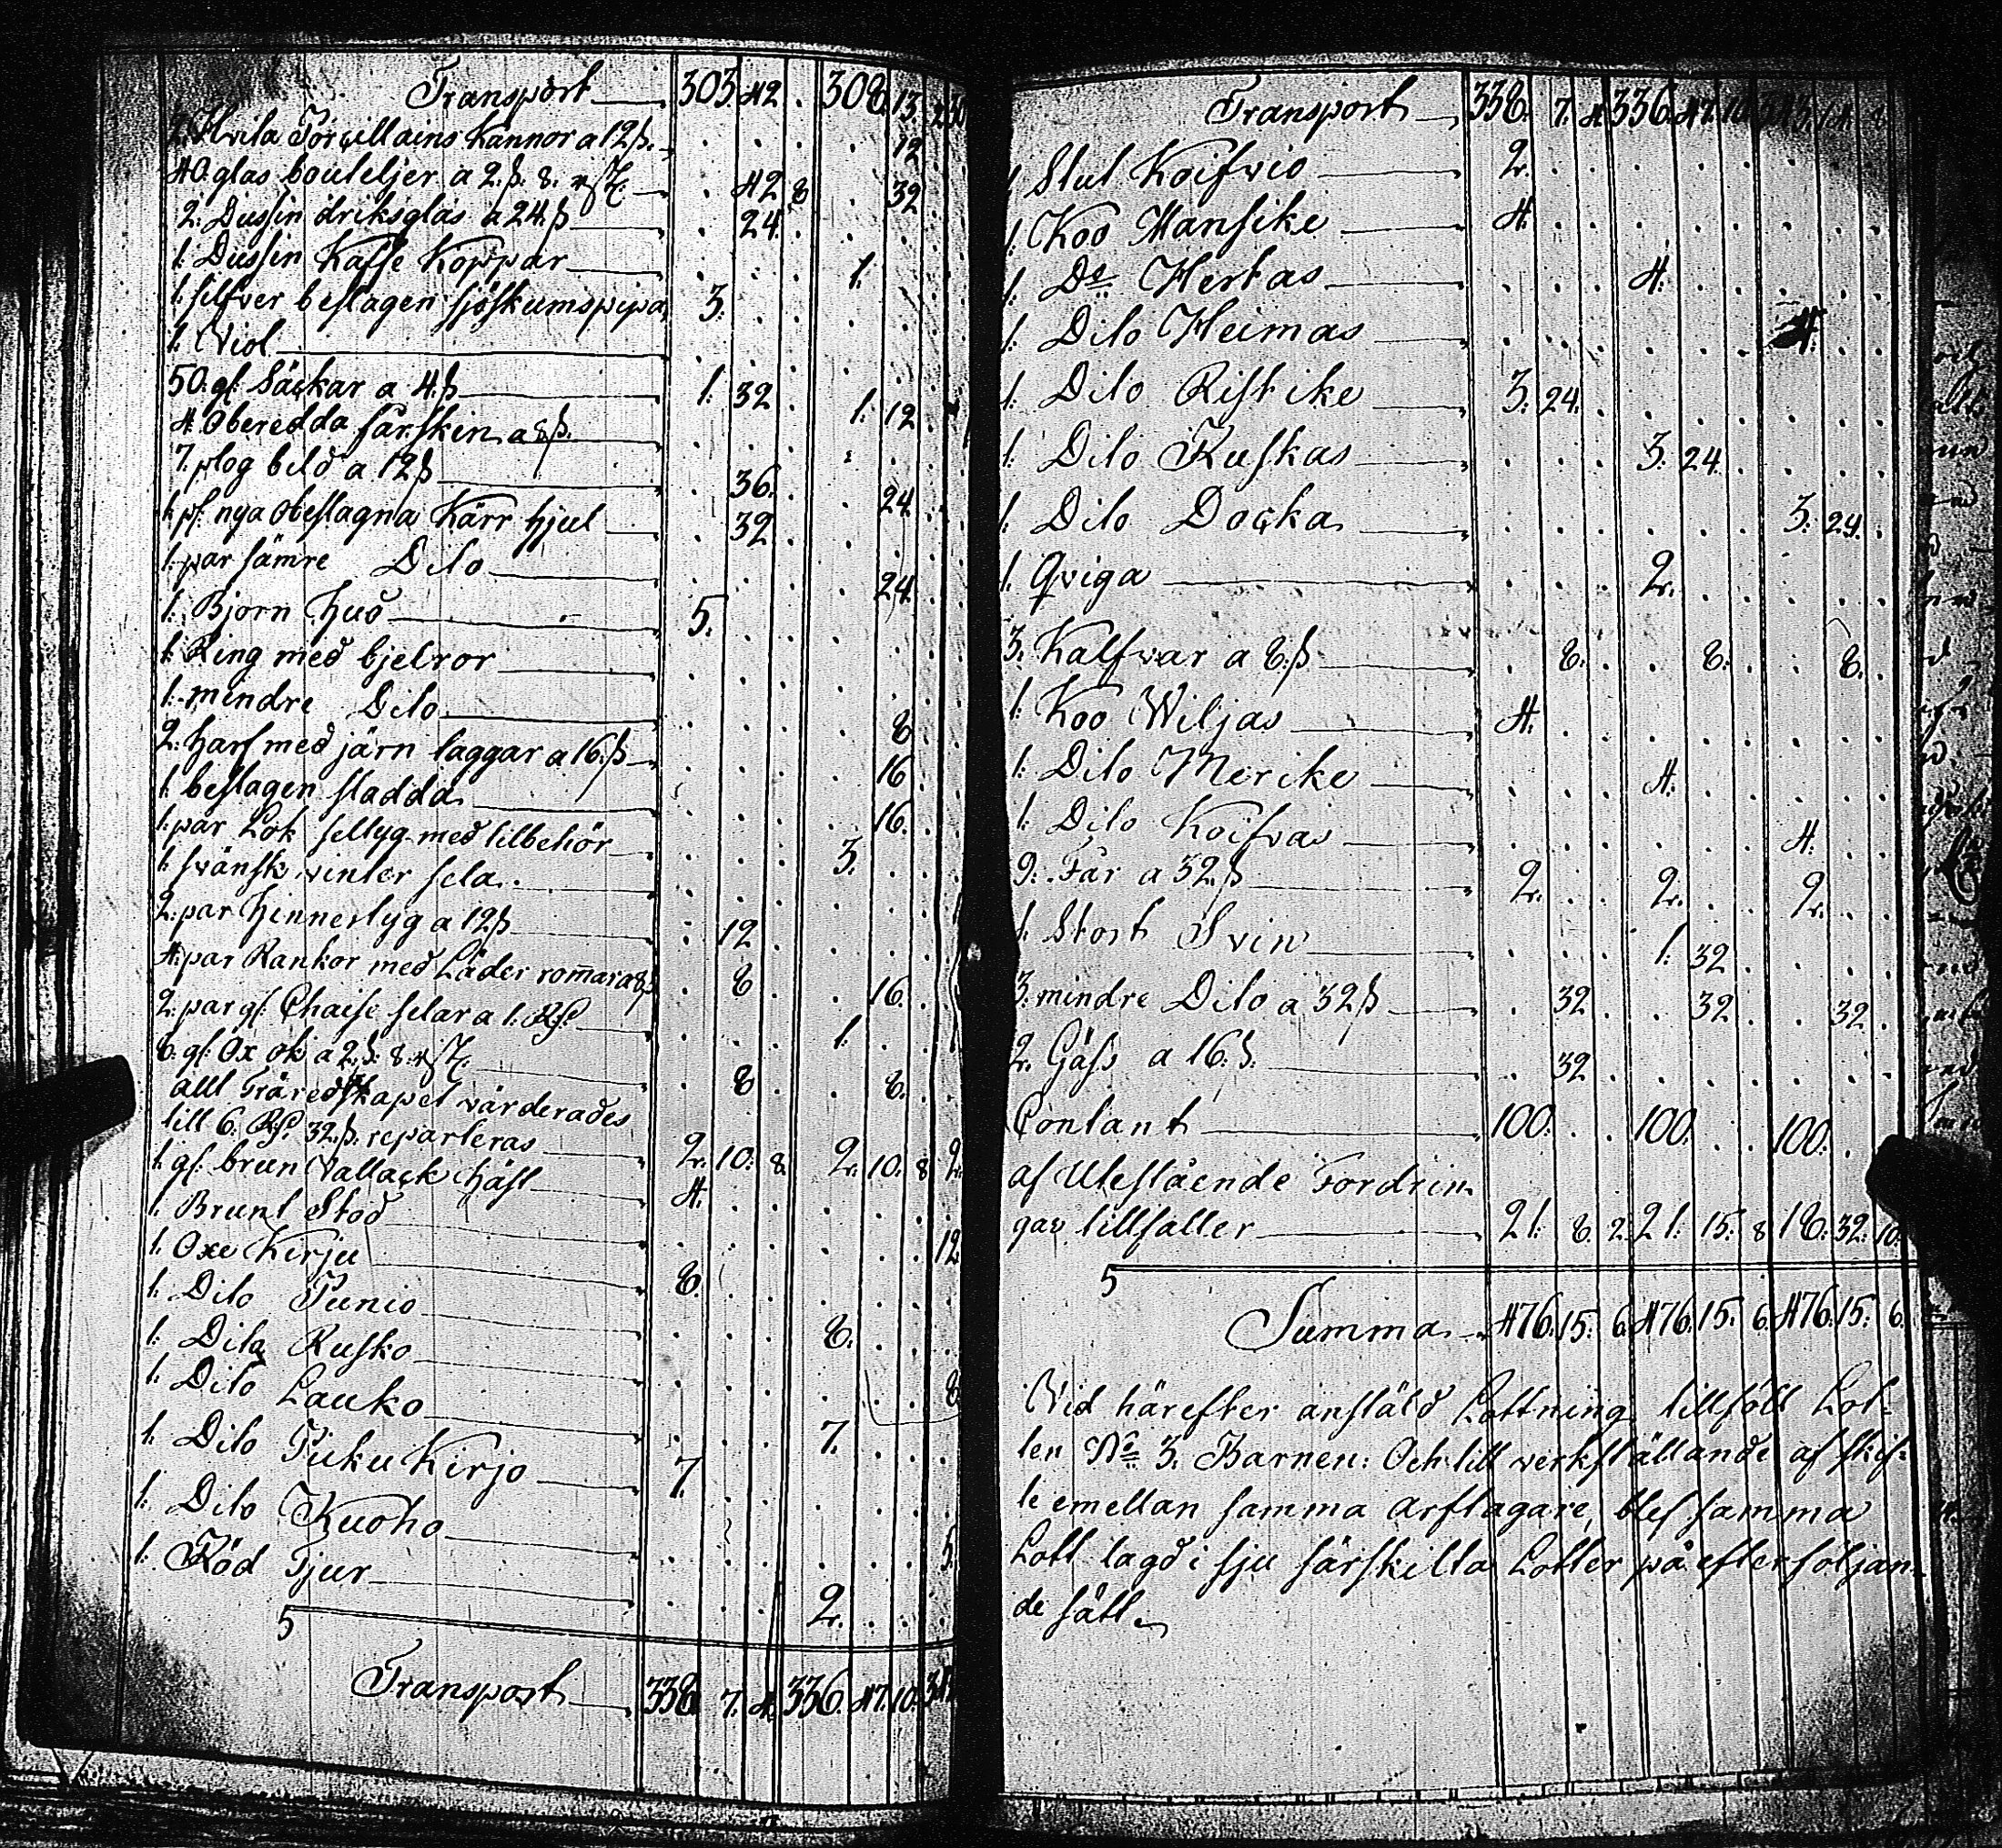 Transport 303. 42. 308. 13.
2. Hvita Porcillains Kannor a 12 ß. 12
40. glas bouteljer a 2. ß. 8. rst. 42 8 32
2. Dussin driksglas a 24 ß 24.
1. Dussin Kaffe Koppar 1.
1. silfver beslagen sjöskumspipa 3.
1. Viol
50. gl. Säckar a 4. ß 1. 32 1. 12
4. Oberedda fårskin a 8 ß.
7. plog bild a 12 ß 36. 24
1. pr. nya obeslagna Kärr hjul 32
1. par sämre Dito 24
1. Bjorn hud 5.
1. Ring med bjelror
1. mindre Dito 8
2. harf med järn taggar a 16. ß 16
1. beslagen sladda 16.
1. par Lok seltyg med tilbehör 3.
1. svänsk vinter sela
2. par hinnertyg a 12 ß 12
4. par Rankor med Läder romar a 8 ß 8 16.
2. par gl. Chaise selar a 1. Rd. 1.
6. gl. Ox ok a 2. ß. 8. rst. 8 8.
allt Träredskapet värderades
till 6. Rd. 32. ß. reparteras 2. 10. 8 2. 10. 8 2.
1. gl. brun Vallack häst 4.
1. Brunt Stod 12
1. Oxe Kirju 8.
1. Dito Punio 8.
1. Dito Rusko 8
1. Dito Lauko 7.
1. Dito Puku Kirjo 7.
1. Dito Kuoho 5.
1. Röd Tjur 2.
Transport 338. 7. 4. 336. 47. 10.
Transport 338. 7. 4 336. 47. 10
1. Stut Koifvio 2.
1. Koo Mansike 4.
1. Do Hertas 4.
1. Dito Heimas 4.
1. Dito Ristike 3. 24.
1. Dito Ruskas 3. 24.
1. Dito Docka 3. 24.
1. Qviga 2.
3. Kalfwar a 8. ß 8. 8. 8.
1. Koo Wiljas 4.
1. Dito Merike 4.
1. Dito Koifvas 4.
9. Får a 32. ß 2. 2. 2.
1. Stort Svin 1. 32
3. mindre Dito a 32 ß 32 32 32
2. Gäss a 16. ß. 32
Contant 100. 100. 100.
af Utestående Fordrin
gar tillfaller 21. 8. 2. 21. 15. 8 18. 32. 10.
Summa 476. 15. 6. 476. 15. 6. 476. 15. 6.
Vid härefter anstäld Lottning tillföll Lot-
ten No 3. Barnen: Och till verkställande af skif-
te emellan samma arftagare, blef samma
Lott lagd i sju särskilta Lotter på efterföljan-
de sätt